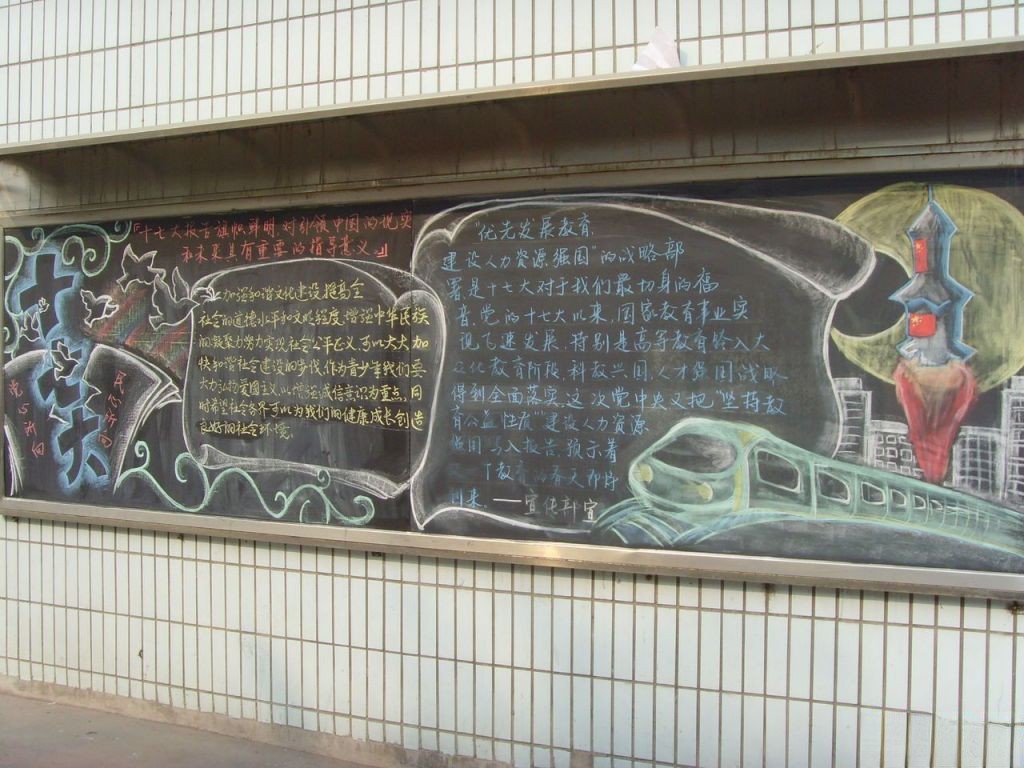 『十七大报告旗帜鲜明,对引领中国的现实
和未来具有重要的指导意义。』
十七大
党心所向
民心所向
加强和谐文化建设,提高全
社会的道德水平和文明程度,增强中华民族
的凝聚力,努力实现社会公平正义,可以大大加
快和谐社会建设的步伐,作为青少年我们要
大力弘扬爱国主义,以增强诚信意识为重点,同
时希望社会各界可以为我们的健康成长创造
良好的社会环境。
优先发展教育,
建设人力资源强国"的战略部
署,是十七大对于我们最切身的福
音,党的十七大以来,国家教育事业实
现飞速发展,特别是高等教育跨入大
众化教育阶段,科教兴国,人才强国战略
得到全面落实,这次党中央又把"坚持教
育公益性质"建设人力资源
强国写入报告,预示着
个教育的春天即将
到来。——宣传部宣